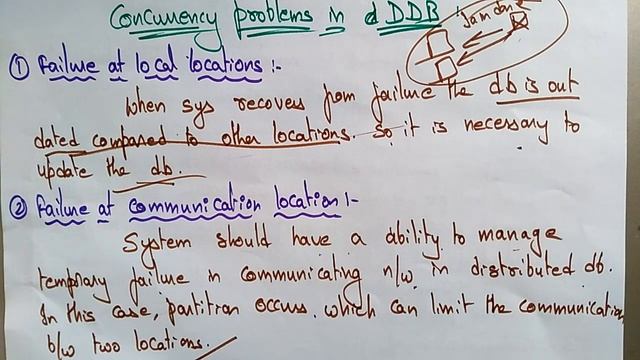 Concurrency problems in d DDB :
① Failure at local locations :-
When sys recovers from failure the db is out
dated compared to other locations. So it is necessary to
update the db.
② Failure at communication location :-
System should have a ability to manage
temprary failure in communicating n/w in distributed db.
In this case, partitran occurs. which can limit the communication
b/w two locations.